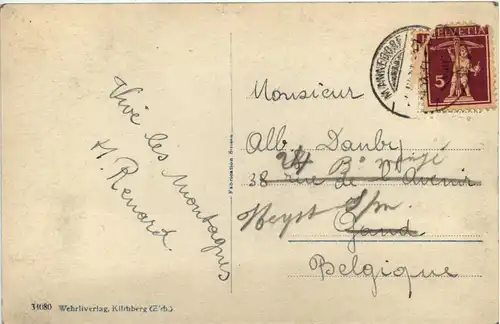 HELVETIA
5
MÄNNEDORF
Vive les montagnes
H. Renard
Monsieur
Alb. Danby
24 B
38 rue de l'Avenir
Heyst s/m.
Gand
Belgique
Fabrication Suisse
34080 Wehrliverlag, Kilchberg (Zch.)